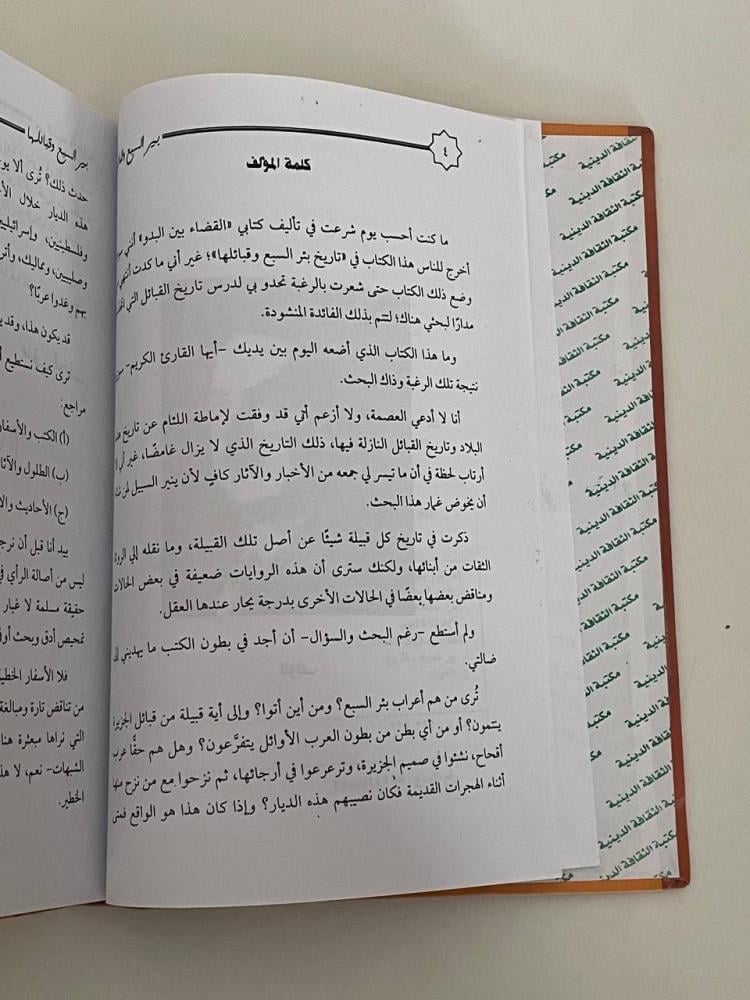 ٤
بير السبع
كلمة المؤلف
ما كنت أحسب يوم شرعت في تأليف كتابي «القضاء بين البدو» أنني
أخرج للناس هذا الكتاب في «تاريخ بئر السبع وقبائلها»؛ غير أني ما كدت
وضع ذلك الكتاب حتى شعرت بالرغبة تحدو بي لدرس تاريخ القبائل التي
مدارًا لبحثي هناك؛ لتتم بذلك الفائدة المنشودة.
وما هذا الكتاب الذي أضعه اليوم بين يديك -أيها القارئ الكريم-
نتيجة تلك الرغبة وذاك البحث.
أنا لا أدعي العصمة، ولا أزعم أني قد وفقت لإماطة اللثام عن تاريخ
البلاد وتاريخ القبائل النازلة فيها، ذلك التاريخ الذي لا يزال غامضًا، غير أني
أرتاب لحظة في أن ما تيسر لي جمعه من الأخبار والآثار كافٍ لأن ينير السبيل لمن
أن يخوض غمار هذا البحث.
ذكرت في تاريخ كل قبيلة شيئًا عن أصل تلك القبيلة، وما نقله إلي
الثقات من أبنائها، ولكنك سترى أن هذه الروايات ضعيفة في بعض الحالات
ومناقض بعضها بعضًا في الحالات الأخرى بدرجة يحار عندها العقل.
ولم أستطع -رغم البحث والسؤال- أن أجد في بطون الكتب ما يهديني إلى
ضالتي.
تُرى من هم أعراب بئر السبع؟ ومن أين أتوا؟ وإلى أية قبيلة من قبائل الجزيرة
ينتمون؟ أو من أي بطن من بطون العرب الأوائل يتفرَّعون؟ وهل هم حقًّا عرب
أقحاح، نشئوا في صميم الجزيرة، وترعرعوا في أرجائها، ثم نزحوا مع من نزح منها
أثناء الهجرات القديمة فكان نصيبهم هذه الديار؟ وإذا كان هذا هو الواقع فمتى
بير السبع وقبائلها
حدث ذلك؟ تُرى ألا
هذه الديار خلال
وفلسطينيين،
وصليبيين، ومماليك،
بهم وغدوا عربًا؟
قد يكون هذا، وقد
ترى كيف نستطيع
مراجع:
(أ) الكتب والأسفار
(ب) الطلول والآثار
(ج) الأحاديث
بيد أنا قبل أن
ليس من أصالة الرأي
حقيقة مسلمة لا غبار
تمحيص أدق وبحث
فلا الأسفار
من تناقض تارة ومبالغة
التي نراها مبعثرة هنا
الشبهات- نعم، لا
الخطير.
مكتبة الثقافة الدينية
مكتبة الثقافة الدينية
مكتبة الثقافة الدينية
مكتبة الثقافة الدينية